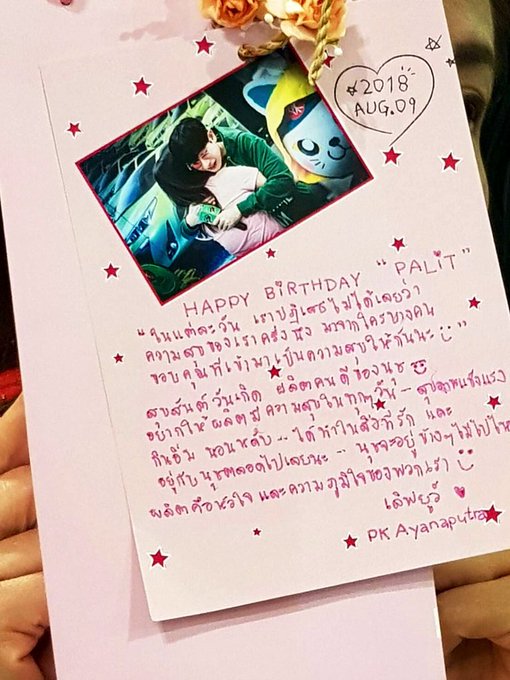 2018
AUG.09
HAPPY BIRTHDAY "PALIT"
"ในแต่ละวัน เราปฏิเสธไม่ได้เลยว่า
ความสุขของเราครึ่งนึง มาจากใครบางคน
ขอบคุณที่เข้ามาเป็นความสุขให้กันนะ"
สุขสันต์วันเกิด ผลิตคนดีของนุช
อยากให้ผลิตมีความสุขในทุกๆวัน - สุขภาพแข็งแรง
กินอิ่ม นอนหลับ -- ได้ทำในสิ่งที่รัก และ
อยู่กับนุชตลอดไปเลยนะ -- นุชจะอยู่ข้างๆไม่ไปไหน
ผลิตคือหัวใจ และความภูมิใจของพวกเรา
เลิฟยูว์
PK Ayanaputra